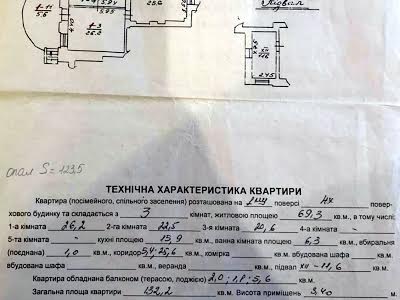 I-11
5,6
1-3
26,2
5.95
25.6
Підвал
2.45
опал S = 123,5
ТЕХНІЧНА ХАРАКТЕРИСТИКА КВАРТИРИ
Квартира (посімейного, спільного заселення) розташована на 1му поверсі 4х повер-
хового будинку та складається з 3 кімнат, житловою площею 69,3 кв.м., в тому числі:
1-а кімната 26,2 кв.м., 2-га кімната 22,5 кв.м., 3-я кімната 20,6 кв.м., 4-а кімната -
5-та кімната - кухні площею 13,9 кв.м., ванна кімната площею 6,3 кв.м., вбиральня
(поєднана) 1,0 кв.м., коридор 5,4; 25,6 кв.м., комірка кв.м., вбудована шафа кв.м.,
вбудована шафа кв.м., веранда кв.м., підвал 11,6 кв.м.
Квартира обладнана балконом (терасою, лоджією) 2,0; 1,1; 5,6 кв.м.
Загальна площа квартири 132,2 кв.м. Висота приміщень 3,40 м.